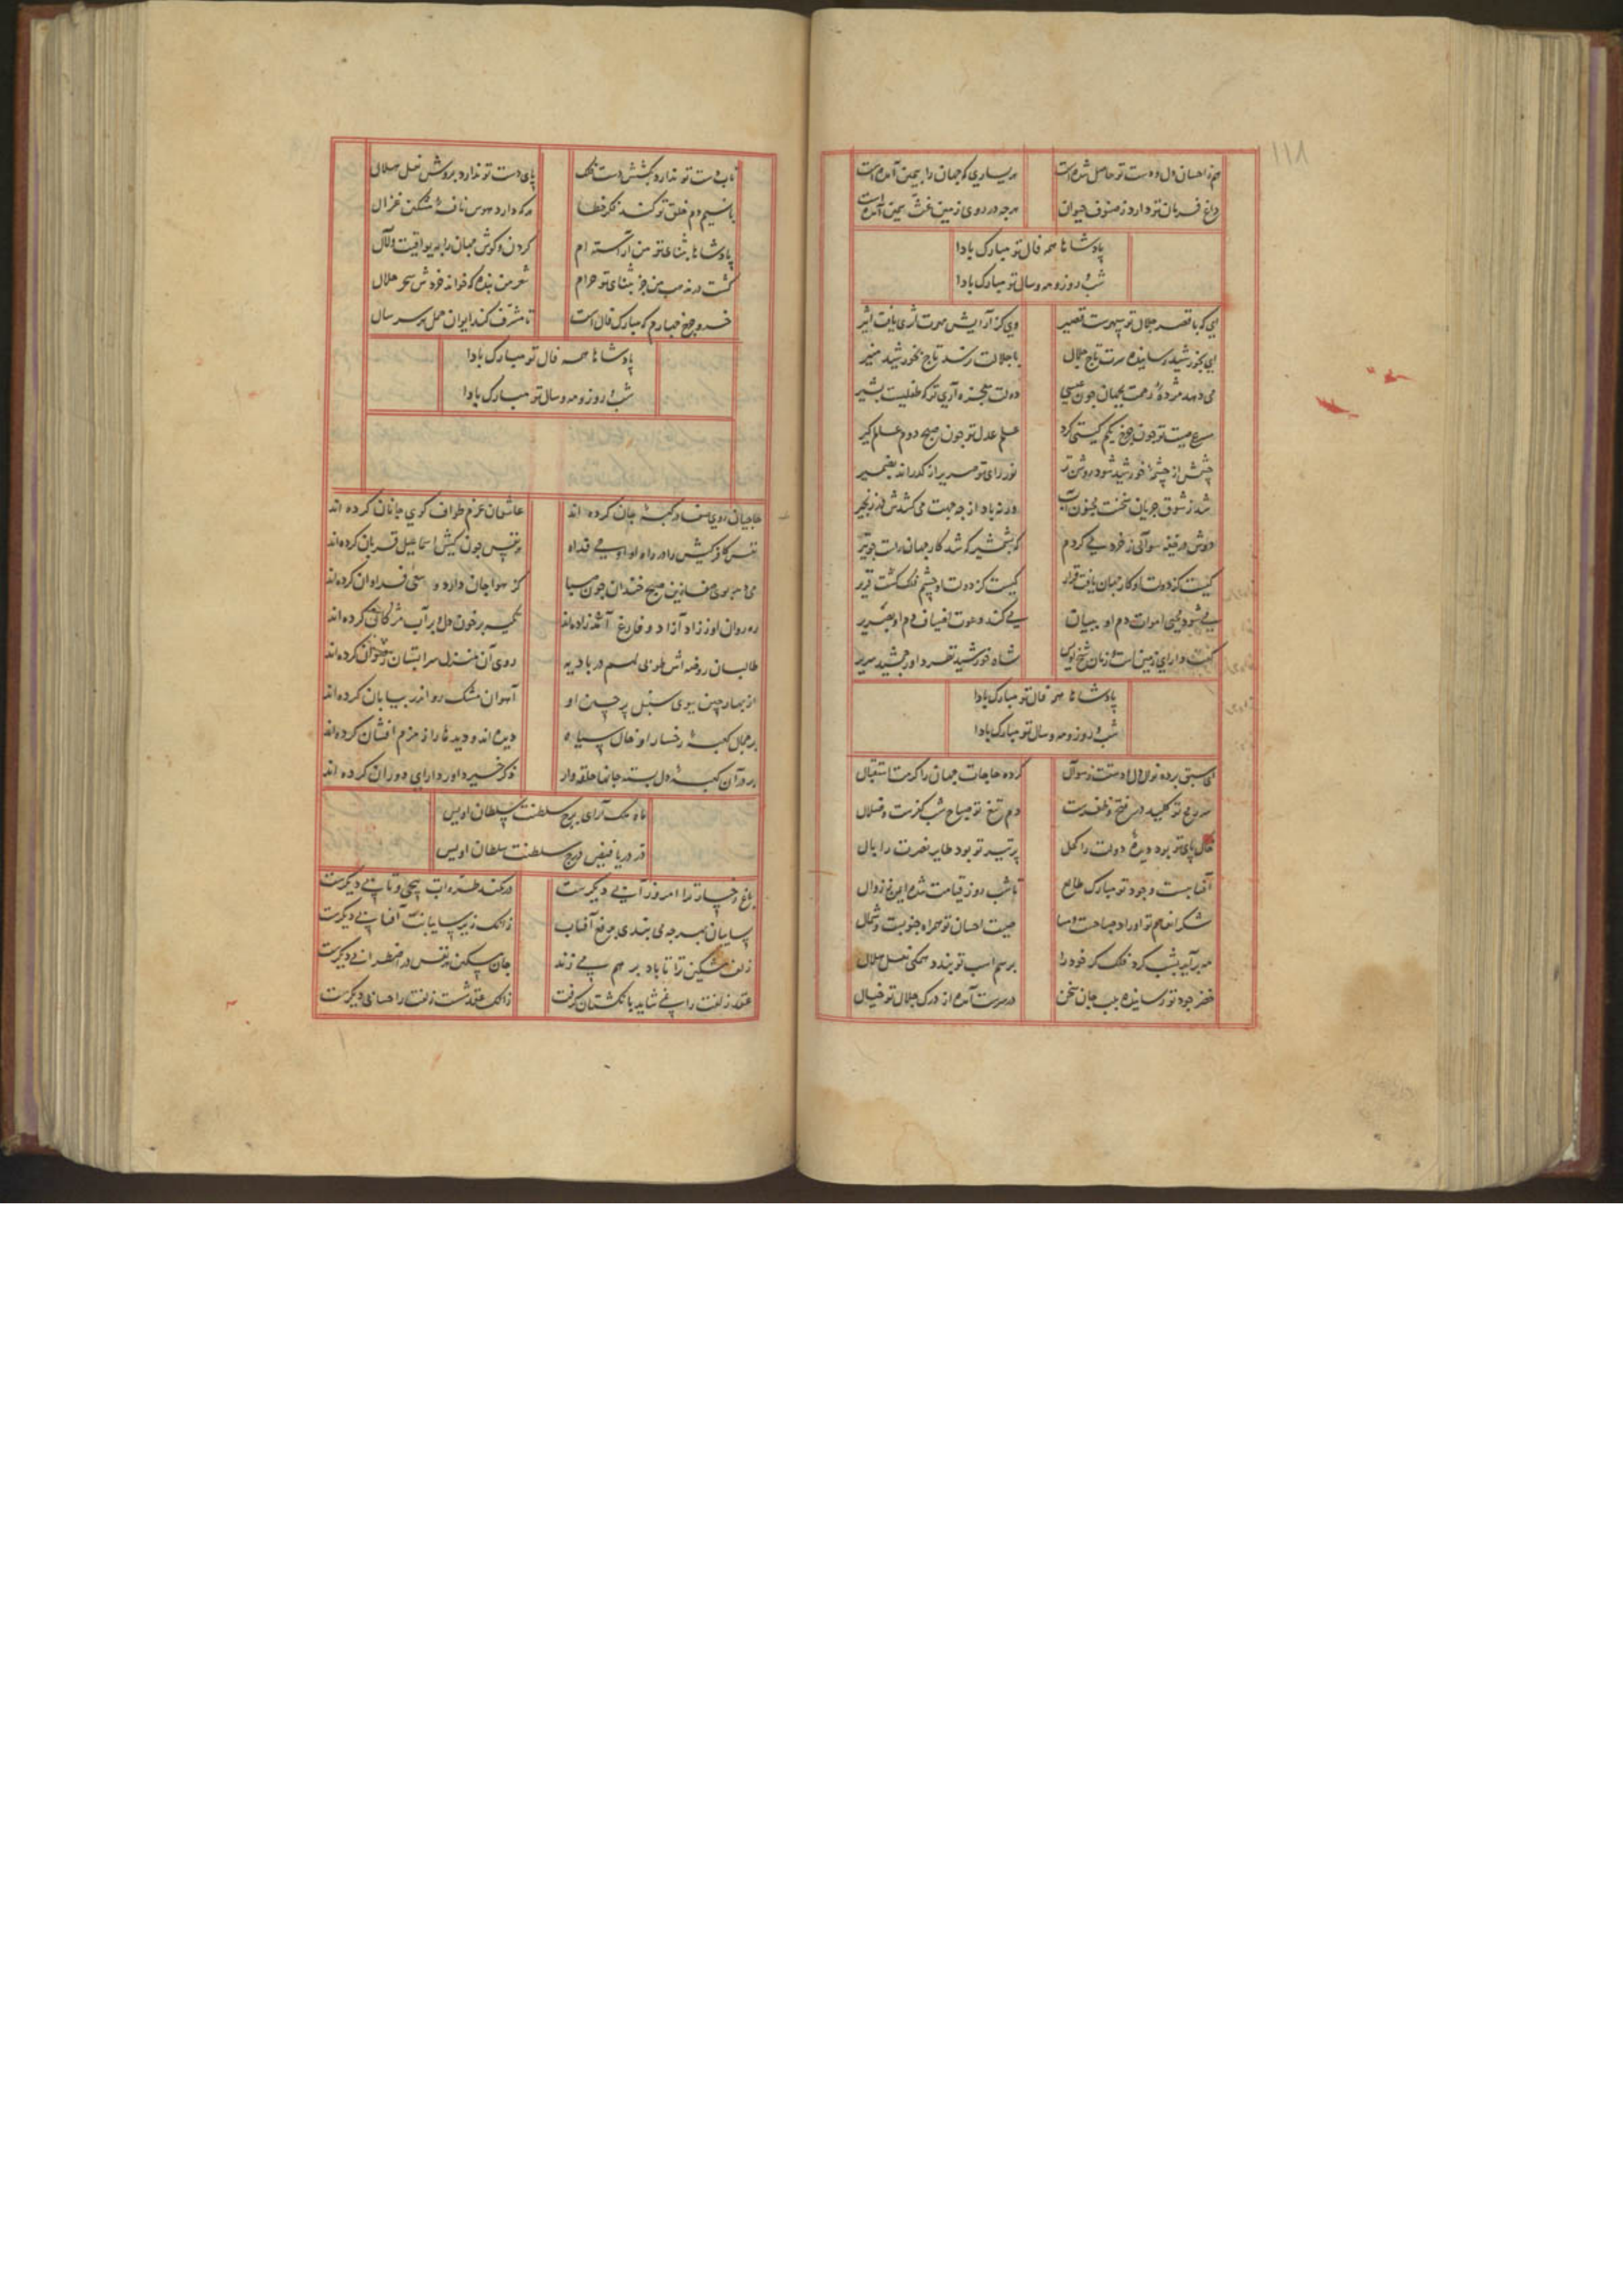 ١١٨
جز احسان دل و دست تو حاصل شده است هر یساری که جهان را به یمین آمده است
داغ فرمان تو دارد ز صنوف حیوان هرچه در روی زمین
پادشاها همه فال تو مبارک بادا
شب و روز و مه و سال تو مبارک بادا
ای که با قصر جلال تو سپهرست قصیر وی کز آرایش
ای بخورشید رسانیده سرت تاج جلال با جلالت رسد تاج بخورشید منیر
می دهد مژدهٔ رحمت بجهان چون عیسی دولت معجزه آری تو که طفلیست بشیر
صیت تو چون چرخ یکم گیتی گرد علم عدل تو چون صبح دوم عالم گیر
چشمش از چشمهٔ خورشید شود روشن تر نور رای تو
شد ز شوق جریان سخنت مجنون آب ورنه باد از چه جهت می کشدش در زنجیر
دوش در قبه سوالی ز خرد می کردم که بشمشیر که شد کار جهان راست چو تیر
کیست کز دولت او کار جهان یافت قرار کیست کز دولت او چشم فلک گشت قریر
می شود محیی اموات دم او ببیان می کند دعوت
گفت دارای زمین است و زمان شیخ اویس شاه خورشید نظر داور جمشید سریر
پادشاها همه فال تو مبارک بادا
شب و روز و مه و سال تو مبارک بادا
ای سبق برده نوال دل و دستت ز سوآل کرده حاجات جهان را کرمت استقبال
سر رمح تو کلید در فتح و ظفرست دم تیغ تو صباح شب کفرست و ضلال
خاک پای تو بود دیدهٔ دولت را کحل پر تیر تو بود طایر نصرت را بال
آفتابست وجود تو مبارک طالع تا شب روز قیامت شده ایمن ز زوال
شکر انعام تو اوراد صباحست و مسا صیت احسان تو همراه جنوبست و شمال
مه برآید بشب گرد فلک گر خود را بر سم اسب تو بندد همگی نعل هلال
خضر جود تو رسانیده بلب جان سخن در سرت آمده از درک جلال تو خیال
تاب دست تو ندارد بکشش دست فلک پای دست تو ندارد بروش نعل هلال
با نسیم دم خلق تو کند فکر خطا هرکه دارد هوس نافهٔ مشکین غزال
پادشاها بثنای تو من آراسته ام گردن و گوش جهان را به یواقیت و لآل
گشت در مذهب من جز بثنای تو حرام شعر من بنده که خوانند خردش سحر حلال
خسرو چرخ چهارم که مبارک فال است تا مشرف کند ایوان حمل هر سر سال
پادشاها همه فال تو مبارک بادا
شب و روز و مه و سال تو مبارک بادا
حاجیان روی صفا در کعبهٔ جان کرده اند عاشقان عزم طواف کوی جانان کرده اند
نفس کافر کیش را در راه او چون کیش اسماعیل قربان کرده اند
صبح خندان چون صبا کز هوا جان داده و سعی فراوان کرده اند
ره روان او ز زاد آزاد و فارغ تکیه بر خون دل و بر آب مژگان کرده اند
طالبان روضه اش طوبی لهم در بادیه روی آن منزل سرابستان رضوان کرده اند
ببوی سنبل پر چین او آهوان مشک رو اندر بیابان کرده اند
بر جمال کعبهٔ رخسار او خال سیاه دیده اند و دیده ها را زمزم افشان کرده اند
بر در آن کعبهٔ دل بسته جانها حلقه وار ذکر خیر داور دارای دوران کرده اند
ماه ملک آرای برج سلطنت سلطان اویس
در دریا فیض درج سلطنت سلطان اویس
باغ رخسار ترا امروز آبی دیگرست در کمند طره ات پیچی و تابی دیگرست
سایبان چه می بندی آفتاب زانک زیر سایبانت آفتابی دیگرست
زلف مشکین ترا تا باد بر هم می زند جان مسکین هر نفس در اضطرابی دیگرست
عقد زلفت را نمی شاید بانگشتان گرفت زانک عقد شست زلفت را حسابی دیگرست